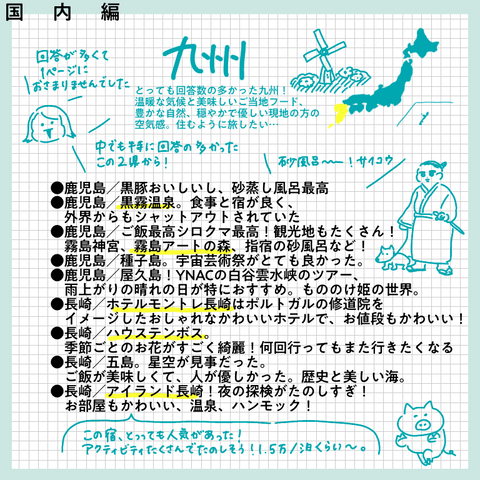 国内編
回答が多くて
1ページに
おさまりませんでした
九州
とっても回答数の多かった九州！
温暖な気候と美味しいご当地フード、
豊かな自然、穏やかで優しい現地の方の
空気感。住むように旅したい…
中でも特に回答の多かった
この2県から！
砂風呂〜〜！サイコウ
●鹿児島／黒豚おいしいし、砂蒸し風呂最高
●鹿児島／黒霧温泉。食事と宿が良く、
外界からもシャットアウトされていた
●鹿児島／ご飯最高シロクマ最高！観光地もたくさん！
霧島神宮、霧島アートの森、指宿の砂風呂など！
●鹿児島／種子島。宇宙芸術祭がとても良かった。
●鹿児島／屋久島！YNACの白谷雲水峡のツアー、
雨上がりの晴れの日が特におすすめ。もののけ姫の世界。
●長崎／ホテルモントレ長崎はポルトガルの修道院を
イメージしたおしゃれなかわいいホテルで、お値段もかわいい！
●長崎／ハウステンボス。
季節ごとのお花がすごく綺麗！何回行ってもまた行きたくなる
●長崎／五島。星空が見事だった。
ご飯が美味しくて、人が優しかった。歴史と美しい海。
●長崎／アイランド長崎！夜の探検がたのしすぎ！
お部屋もかわいい、温泉、ハンモック！
この宿、とっっても人気があった！
アクティビティたくさんでたのしそう！1.5万／泊くらい〜。